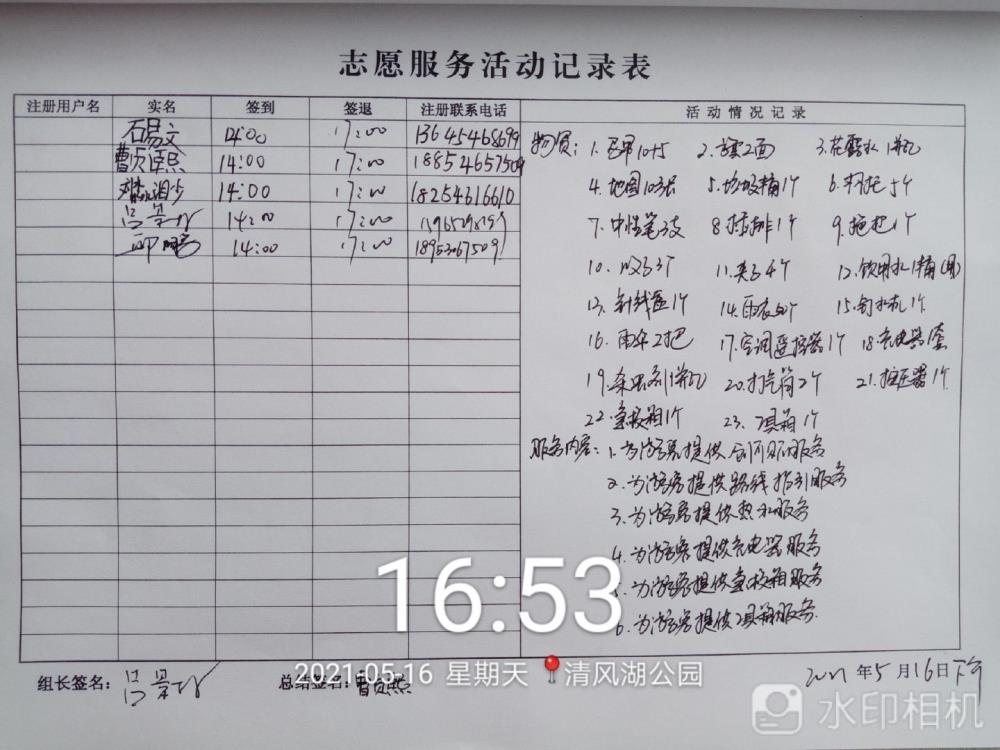 志愿服务活动记录表
注册用户名 实名 签到 签退 注册联系电话 活动情况记录
石易文 14:00 17:00 13645468699
曹贞熙 14:00 17:00 18854657509
14:00 17:00 18254616610
吕景 14:00 17:00
邱鹏 14:00 17:00 18953067509
物资: 1. 马甲10件 2. 2面 3. 花露水1瓶
4. 地图10张 5. 垃圾桶1个 6. 杯托5个
7. 中性笔3支 8. 插排1个 9. 拖把1个
10. 3个 11. 夹子4个 12. 饮用水1桶
13. 针线盒1个 14. 雨衣 15. 1个
16. 雨伞2把 17. 空调遥控器1个 18. 充电器1套
19. 杀虫剂1瓶 20. 打气筒2个 21. 1个
22. 急救箱1个 23. 工具箱1个
服务内容: 1. 为游客提供 服务
2. 为游客提供路线指引服务
3. 为游客提供热水服务
4. 为游客提供充电器服务
16:53
5. 为游客提供急救箱服务
6. 为游客提供工具箱服务.
2021.05.16 星期天 清风湖公园
组长签名: 吕景 总结签名: 曹贞熙 2021年5月16日下午
水印相机